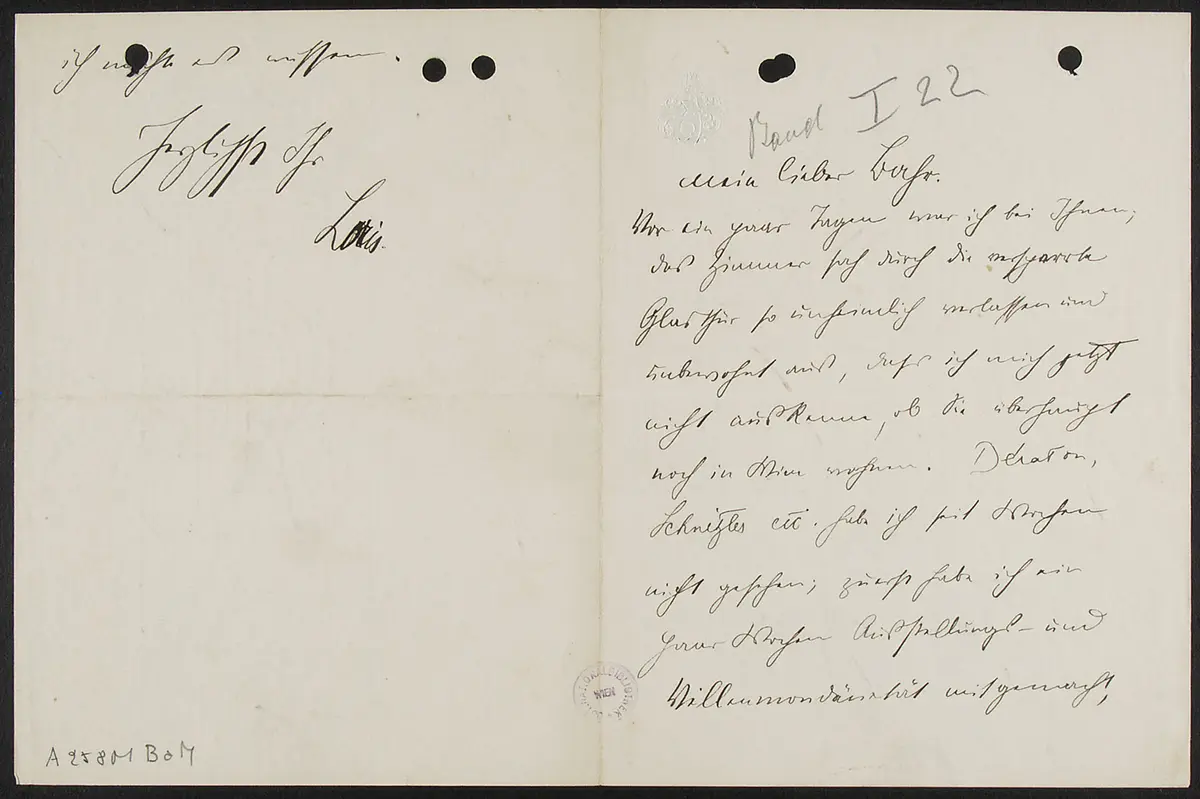 ich möchte es wissen.
Herzlichst Ihr
Loris.
Band I 22
Mein lieber Bahr.
Vor ein paar Tagen war ich bei Ihnen;
das Zimmer sah durch die versperrte
Glasthür so unheimlich verlassen und
unbewohnt aus, dass ich mich jetzt
nicht auskenne, ob Sie überhaupt
noch in Wien wohnen.
Schnitzler etc. habe ich seit Wochen
nicht gesehen; zuerst habe ich ein
paar Wochen Ausstellungs- und
Villenmondänität mitgemacht,
NATIONALBIBLIOTHEK
WIEN
A 25801 BaM